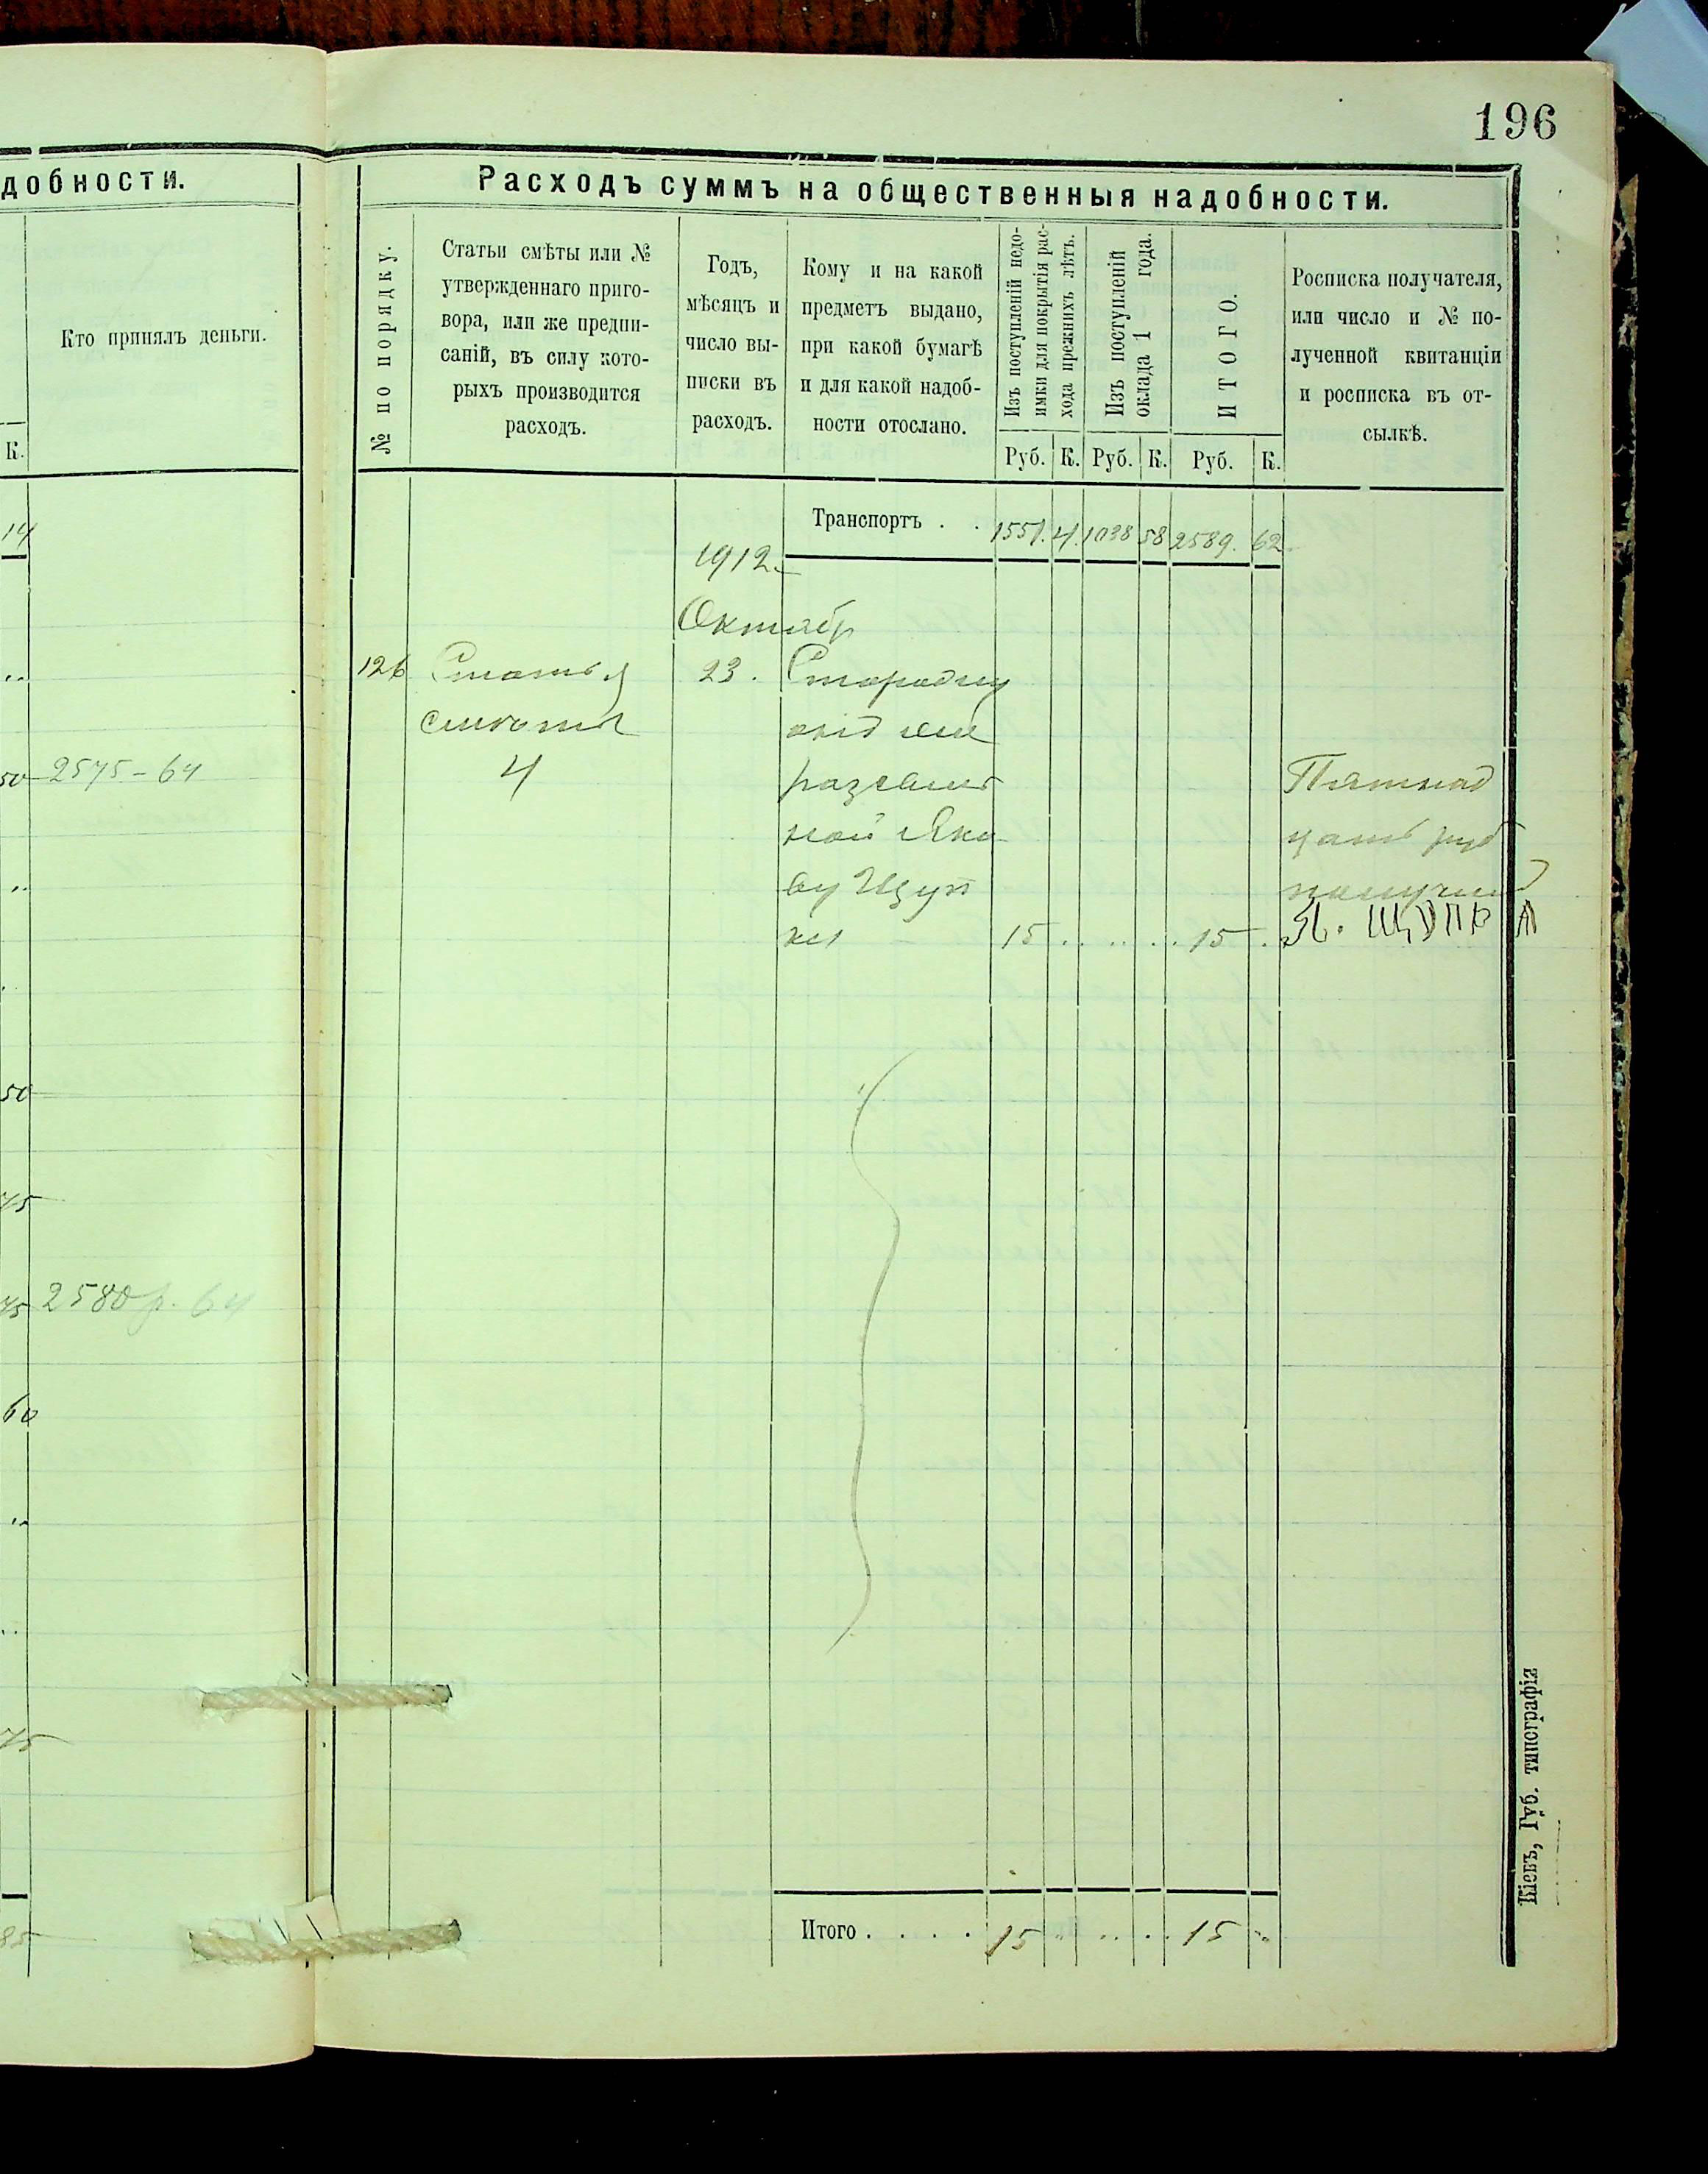 196
добности.
Кто принялъ деньги.
К.
14
50 2575-64
50
75
75 2580 р. 64
60
75
85
Расходъ суммъ на общественныя надобности.
№ по порядку.
Статьи смѣты или №
утвержденнаго приго-
вора, или же предпи-
саній, въ силу кото-
рыхъ производится
расходъ.
Годъ,
мѣсяцъ и
число вы-
писки въ
расходъ.
Кому и на какой
предметъ выдано,
при какой бумагѣ
и для какой надоб-
ности отослано.
Изъ поступленій недо-
имки для покрытія рас-
хода прежнихъ лѣтъ.
Изъ поступленій
оклада 1 года.
ИТОГО.
Руб. К. Руб. К. Руб. К.
Росписка получателя,
или число и № по-
лученной квитанціи
и росписка въ от-
сылкѣ.
Транспортъ . . 1551. 4. 1038 58 2589. 62.
1912
Октябр
126 Статья 23.
смѣты
4
разсыль
ной Яко
ву Щуп
ки 15 15
Пятнад
цать руб
получил
Я. ЩУПКА
Итого . . . . 15 15
Кіевъ, Губ. типографія